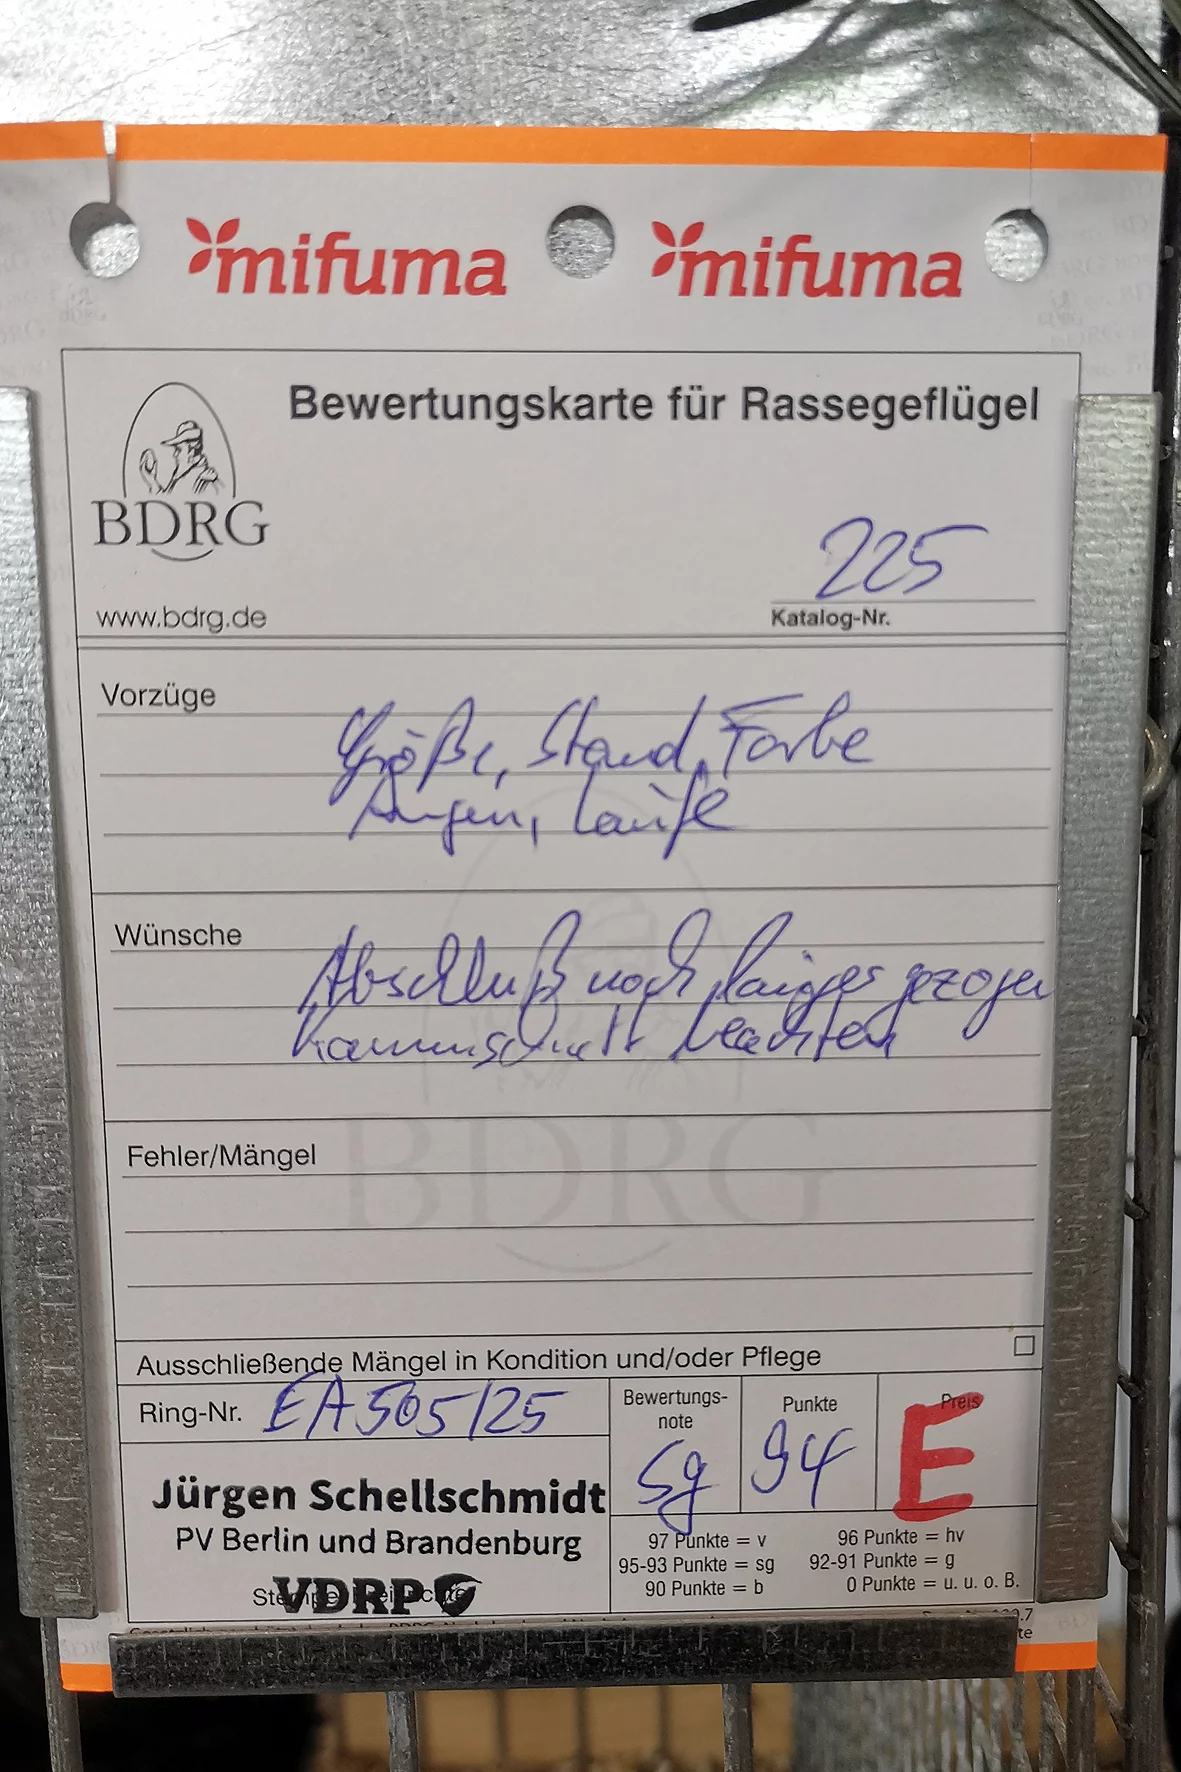 mifuma mifuma
Bewertungskarte für Rassegeflügel
BDRG
www.bdrg.de
225
Katalog-Nr.
Vorzüge
Größe, Stand, Farbe
Augen, Läufe
Wünsche
Abschluß noch länger gezogen
Kammschnitt beachten
BDRG
Fehler/Mängel
Ausschließende Mängel in Kondition und/oder Pflege
Ring-Nr. EA 505/25
Bewertungs-
note
Sg
Punkte
94
Preis
E
Jürgen Schellschmidt
PV Berlin und Brandenburg
VDRP
97 Punkte = v 96 Punkte = hv
95-93 Punkte = sg 92-91 Punkte = g
90 Punkte = b 0 Punkte = u. u. o. B.